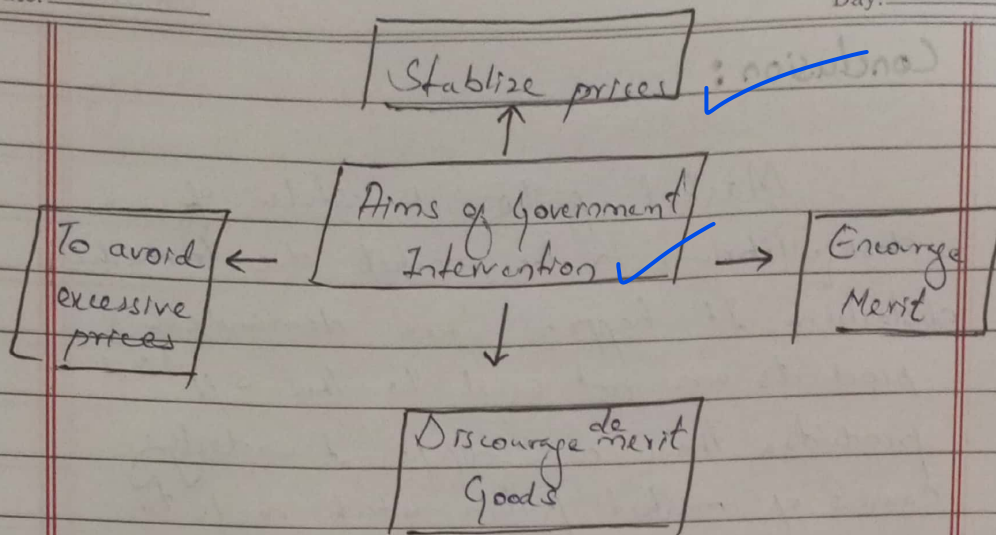 Day:
Stablize prices
Conclusion :
Aims of Government
Intervention
To avoid
excessive
prices
Encourage
Merit
Discourage de merit
Goods